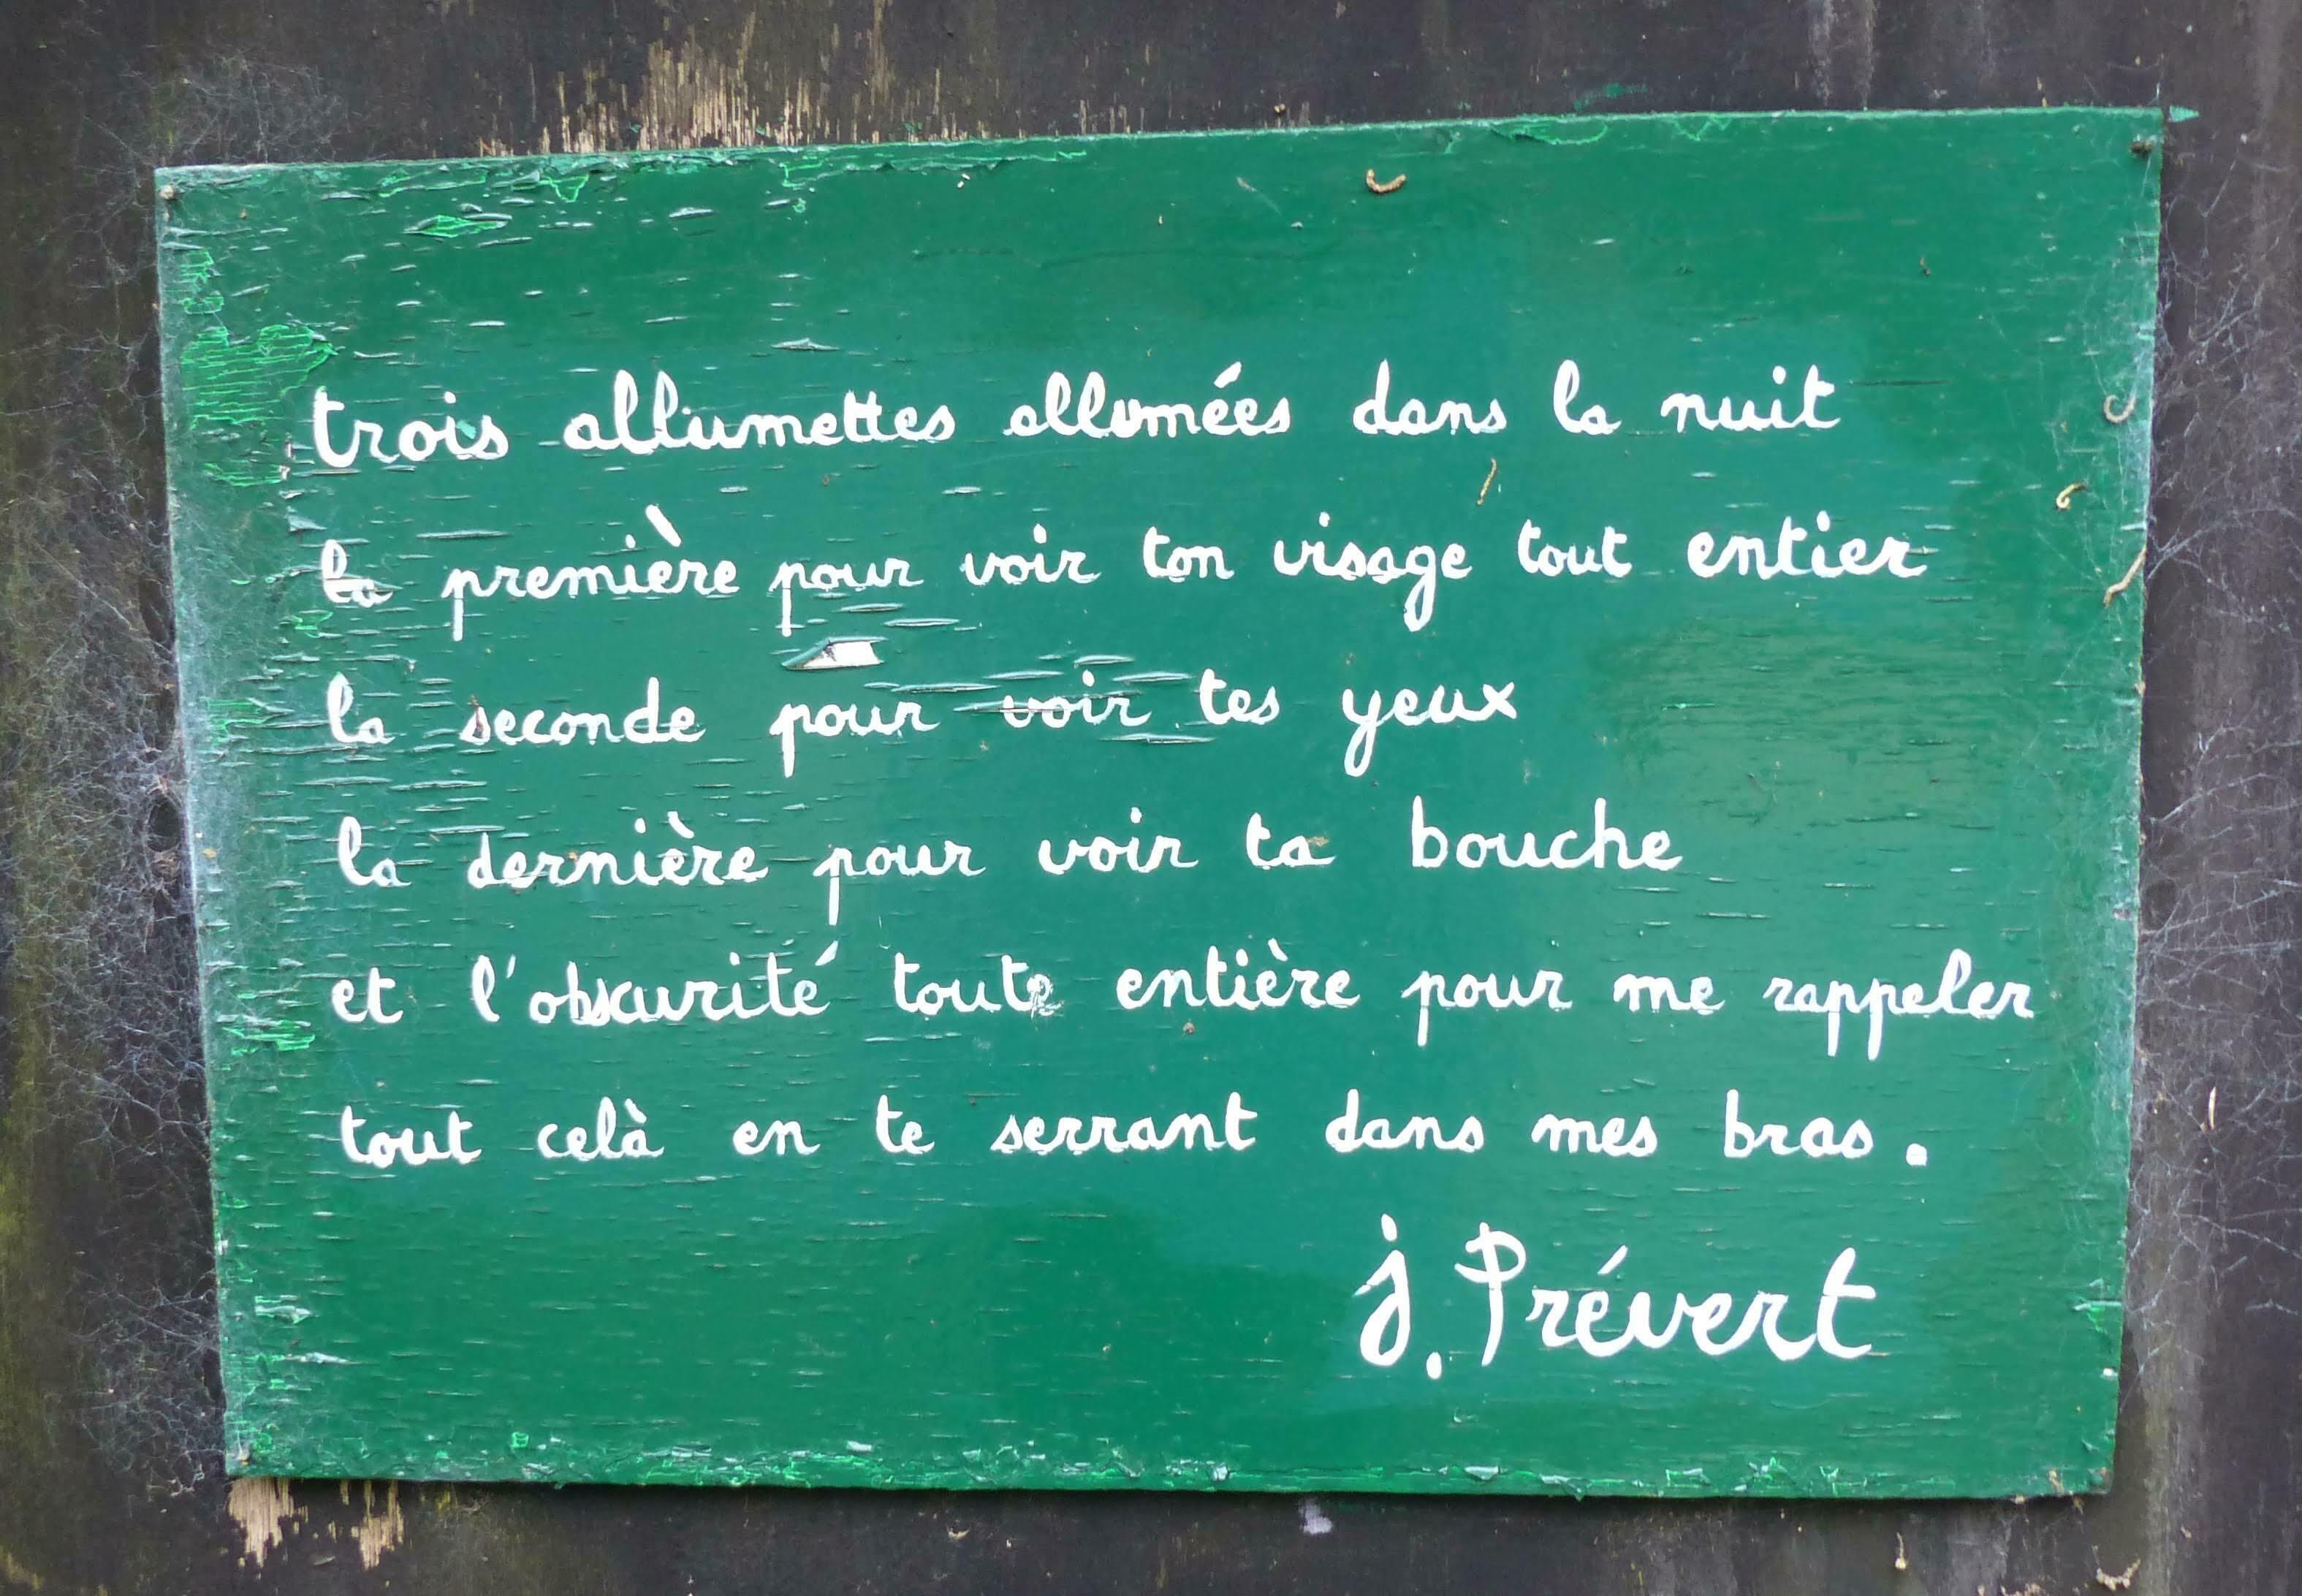 trois allumettes allumées dans la nuit
la première pour voir ton visage tout entier
la seconde pour voir tes yeux
la dernière pour voir ta bouche
et l'obscurité toute entière pour me rappeler
tout celà en te serrant dans mes bras.
J. Prévert